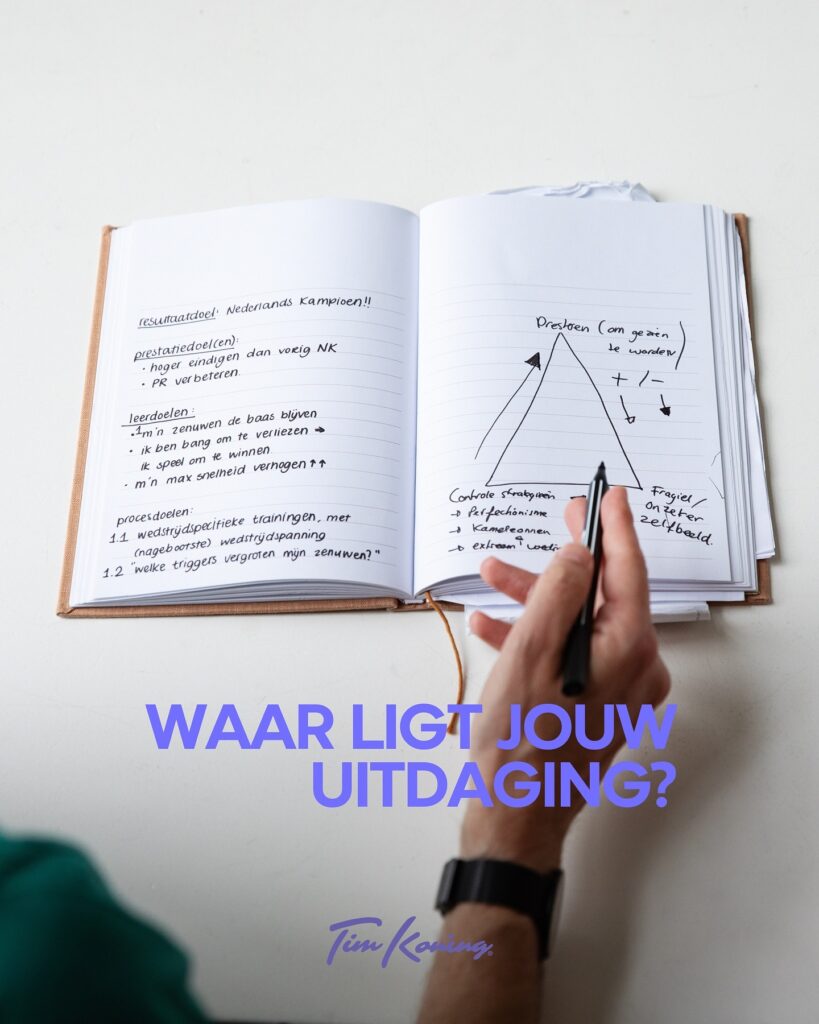 resultaatdoel: Nederlands Kampioen!!
prestatiedoel(en):
• hoger eindigen dan vorig NK
• PR verbeteren.
leerdoelen:
• m'n zenuwen de baas blijven
• ik ben bang om te verliezen →
ik speel om te winnen
• m'n max snelheid verhogen ↑↑
procesdoelen:
1.1 wedstrijdspecifieke trainingen, met
(nagebootste) wedstrijdspanning
1.2 "welke triggers vergroten mijn zenuwen?"
Presteren (om gezien
te worden)
+ / -
Controle strategieën →
→ Perfectionisme
→ Kameleonnen
→ extreem
Fragiel/
onzeker
zelfbeeld.
WAAR LIGT JOUW
UITDAGING?
Tim Koning